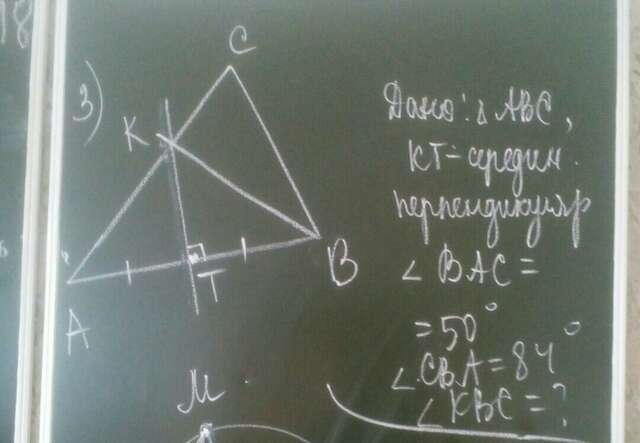 18
3)
C
K
T
B
A
Дано: △ ABC,
KT = середин.
перпендикуляр
∠ BAC =
= 50°
∠ CBA = 84°
∠ KBC = ?
M